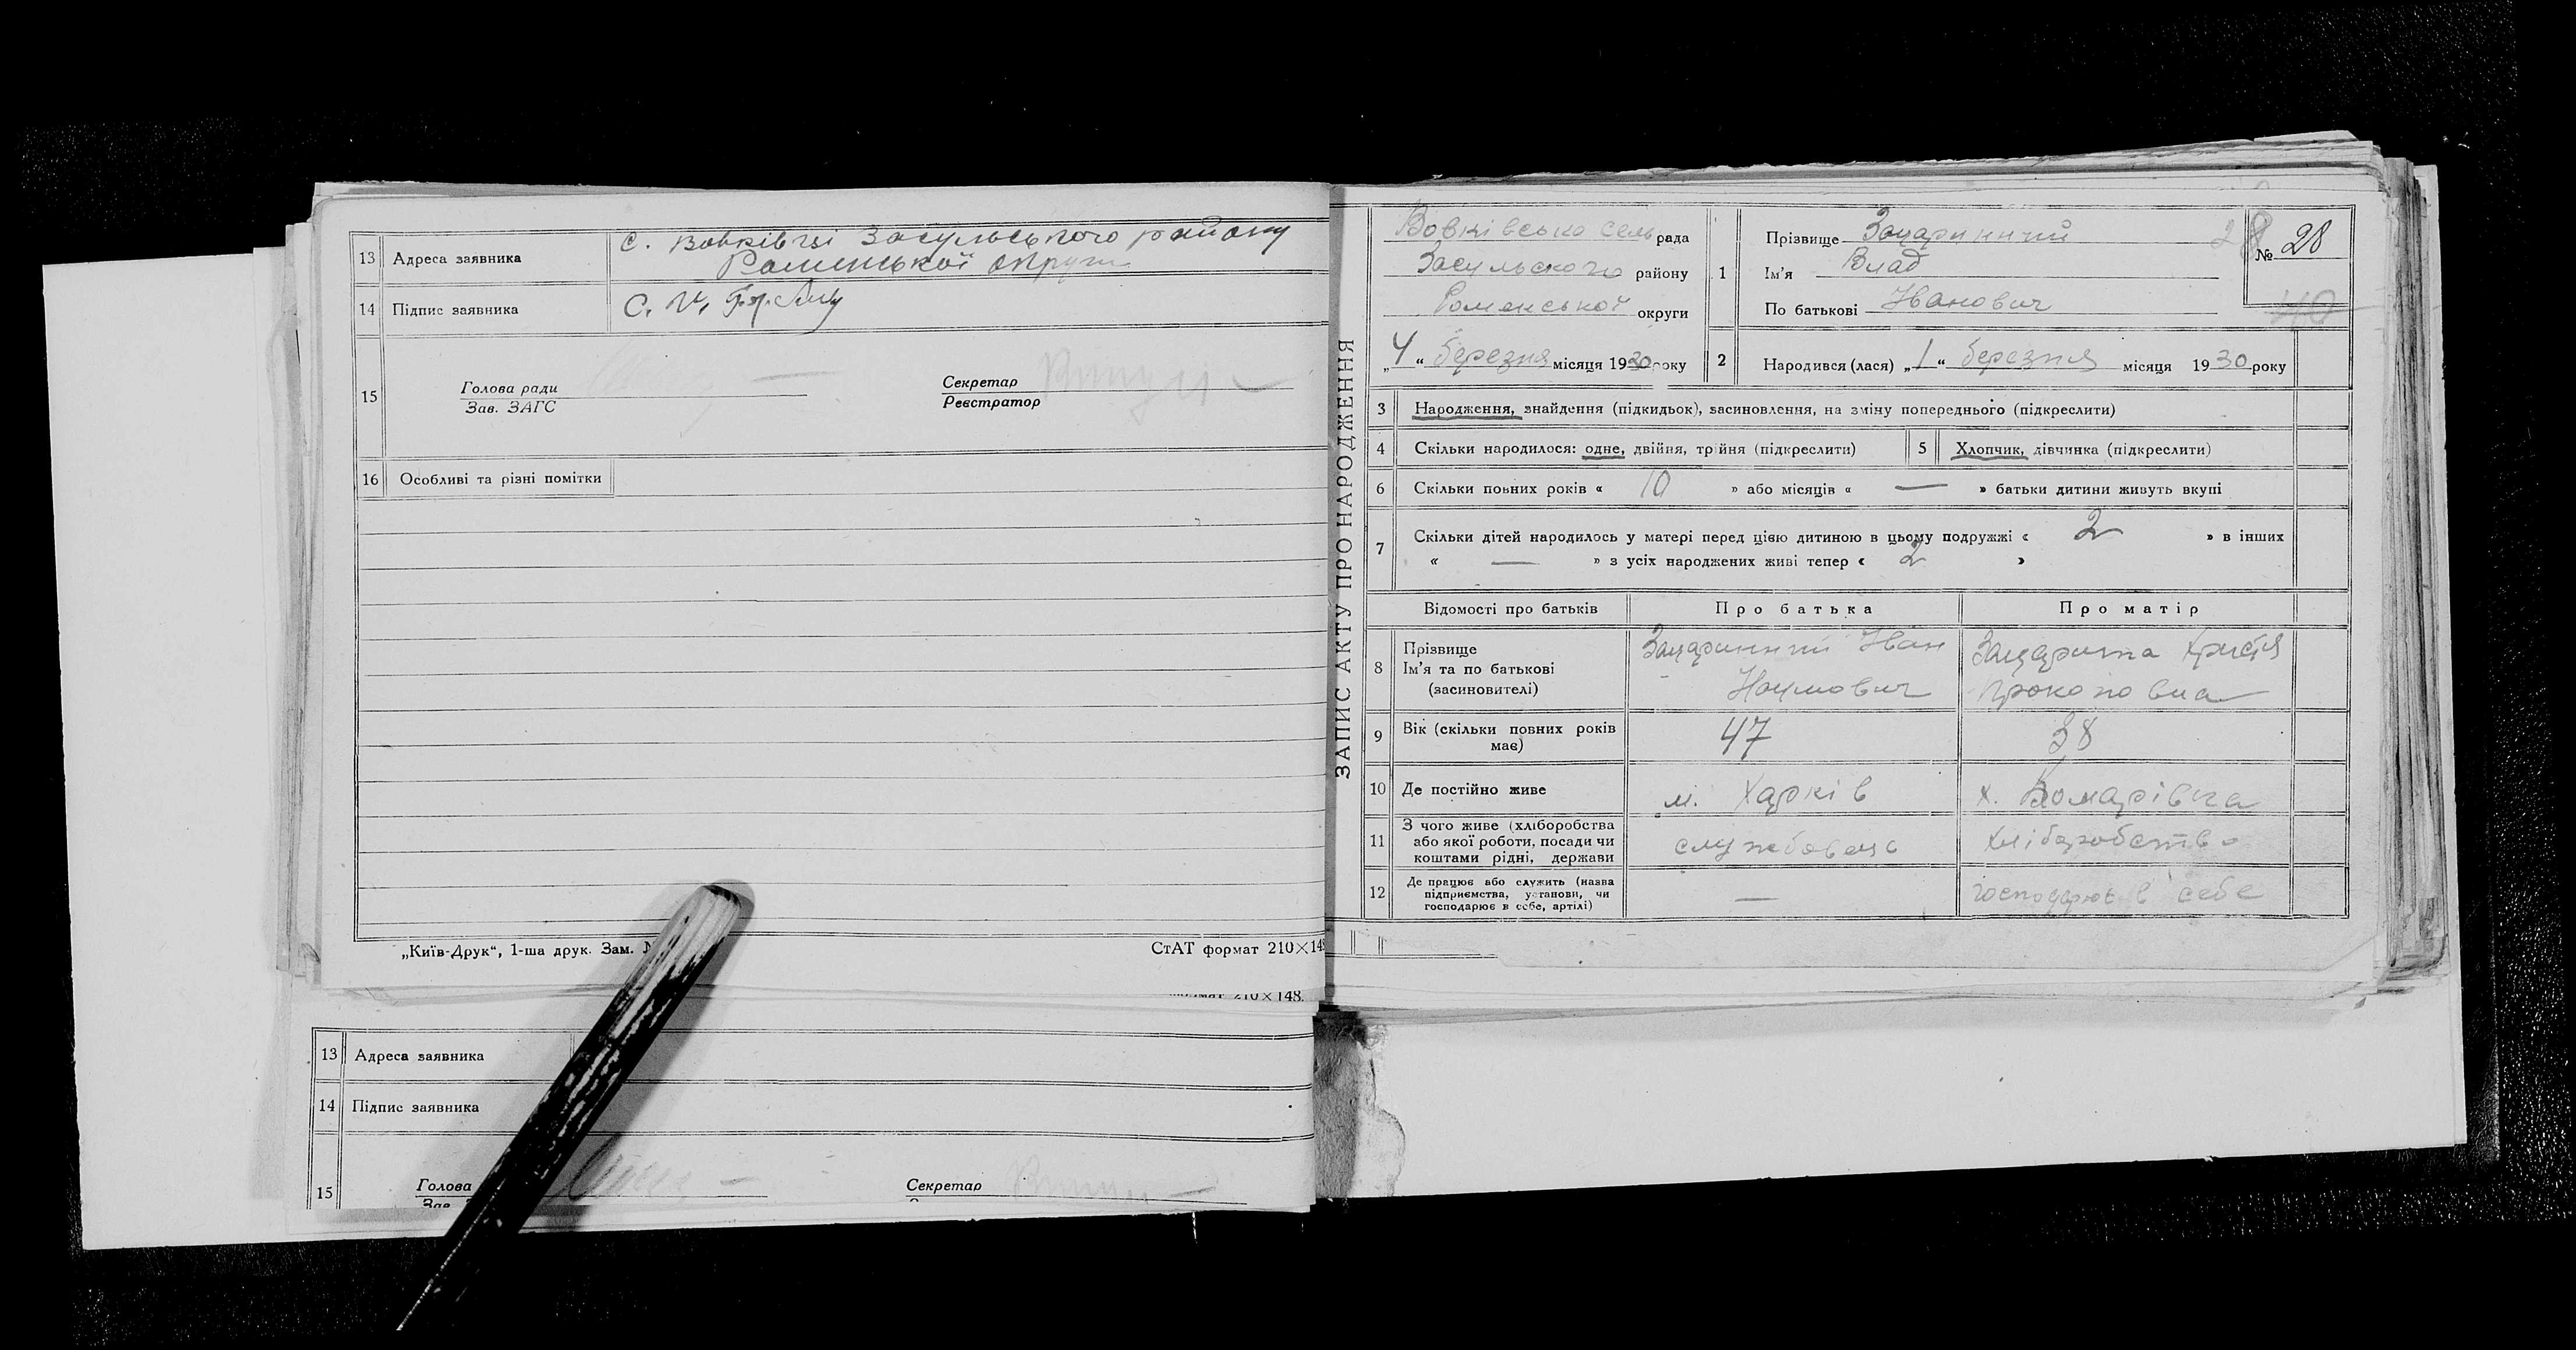 13 Адреса заявника с. Вовківці Засульського району
Роменської округи
14 Підпис заявника С. И.
15 Голова ради
Зав. ЗАГС
Секретар
Реєстратор
16 Особливі та різні помітки
„Київ-Друк“, 1-ша друк. Зам.
СтАТ формат 210×148
210×148.
13 Адреса заявника
14 Підпис заявника
15 Голова
Секретар
ЗАПИС АКТУ ПРО НАРОДЖЕННЯ
Вовківсько сель рада
Засульского району
Роменської округи
„4“ березня місяця 1930 року
1 Прізвище
Ім'я Влад
По батькові Іванович
28
№ 28
40
2 Народився (лася) „1“ березня місяця 1930 року
3 Народження, знайдення (підкидьок), засиновлення, на зміну попереднього (підкреслити)
4 Скільки народилося: одне, двійня, трійня (підкреслити) 5 Хлопчик, дівчинка (підкреслити)
6 Скільки повних років « 10 » або місяців « — » батьки дитини живуть вкупі
7 Скільки дітей народилось у матері перед цією дитиною в цьому подружжі « 2 » в інших
« — » з усіх народжених живі тепер « 2 »
Відомості про батьків Про батька Про матір
8 Прізвище
Ім'я та по батькові
(засиновителі)
Іван
Наумович
Христя
Прокоповна
9 Вік (скільки повних років має) 47 38
10 Де постійно живе м. Харків х. Комарівка
11 З чого живе (хліборобства
або якої роботи, посади чи
коштами рідні, держави
службовець хліборобство
12 Де працює або служить (назва
підприємства, установи, чи
господарює в себе, артілі)
— господарює в себе